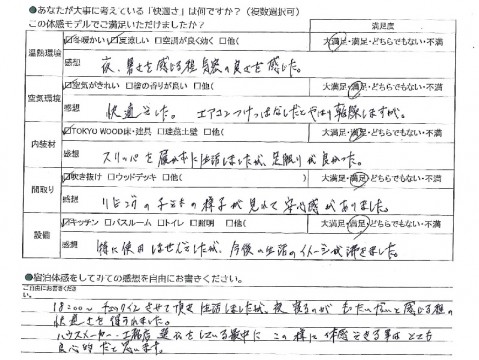 ●あなたが大事に考えている「快適さ」は何ですか？（複数選択可）
この体感モデルでご満足いただけましたか？
満足度
温熱環境 ☑冬暖かい ☑夏涼しい □空調が良く効く □他( 大満足・満足・どちらでもない・不満
感想 夜、暑さを感じる程 気密の良さを感じた。
空気環境 ☑空気がきれい □檜の香りが良い □他( 大満足・満足・どちらでもない・不満
感想 快適でした。 エアコンつけっぱなしだとやはり乾燥しますが。
内装材 ☑TOKYO WOOD床・建具 □珪藻土壁 □他( 大満足・満足・どちらでもない・不満
感想 スリッパを履かずに生活しましたが、足触りが良かった。
間取り ☑吹き抜け □ウッドデッキ □他( ) 大満足・満足・どちらでもない・不満
感想 リビングの子ども の様子が見れて安心感がありました。
設備 ☑キッチン □バスルーム □トイレ □照明 □他( 大満足・満足・どちらでもない・不満
感想 特に使用はせんでしたが、今後の生活のイメージが沸きました。
●宿泊体感をしてみての感想を自由にお書きください。
ご自由にお書きくださ
18:00〜 チェックインさせて頂き 生活しましたが、夜 寝るのが もったいないと感じる程の
快適さを得られました。
ハウスメーカー・工務店 選びをしている最中に この様に 体感できる事は とても
良心的だと思います。